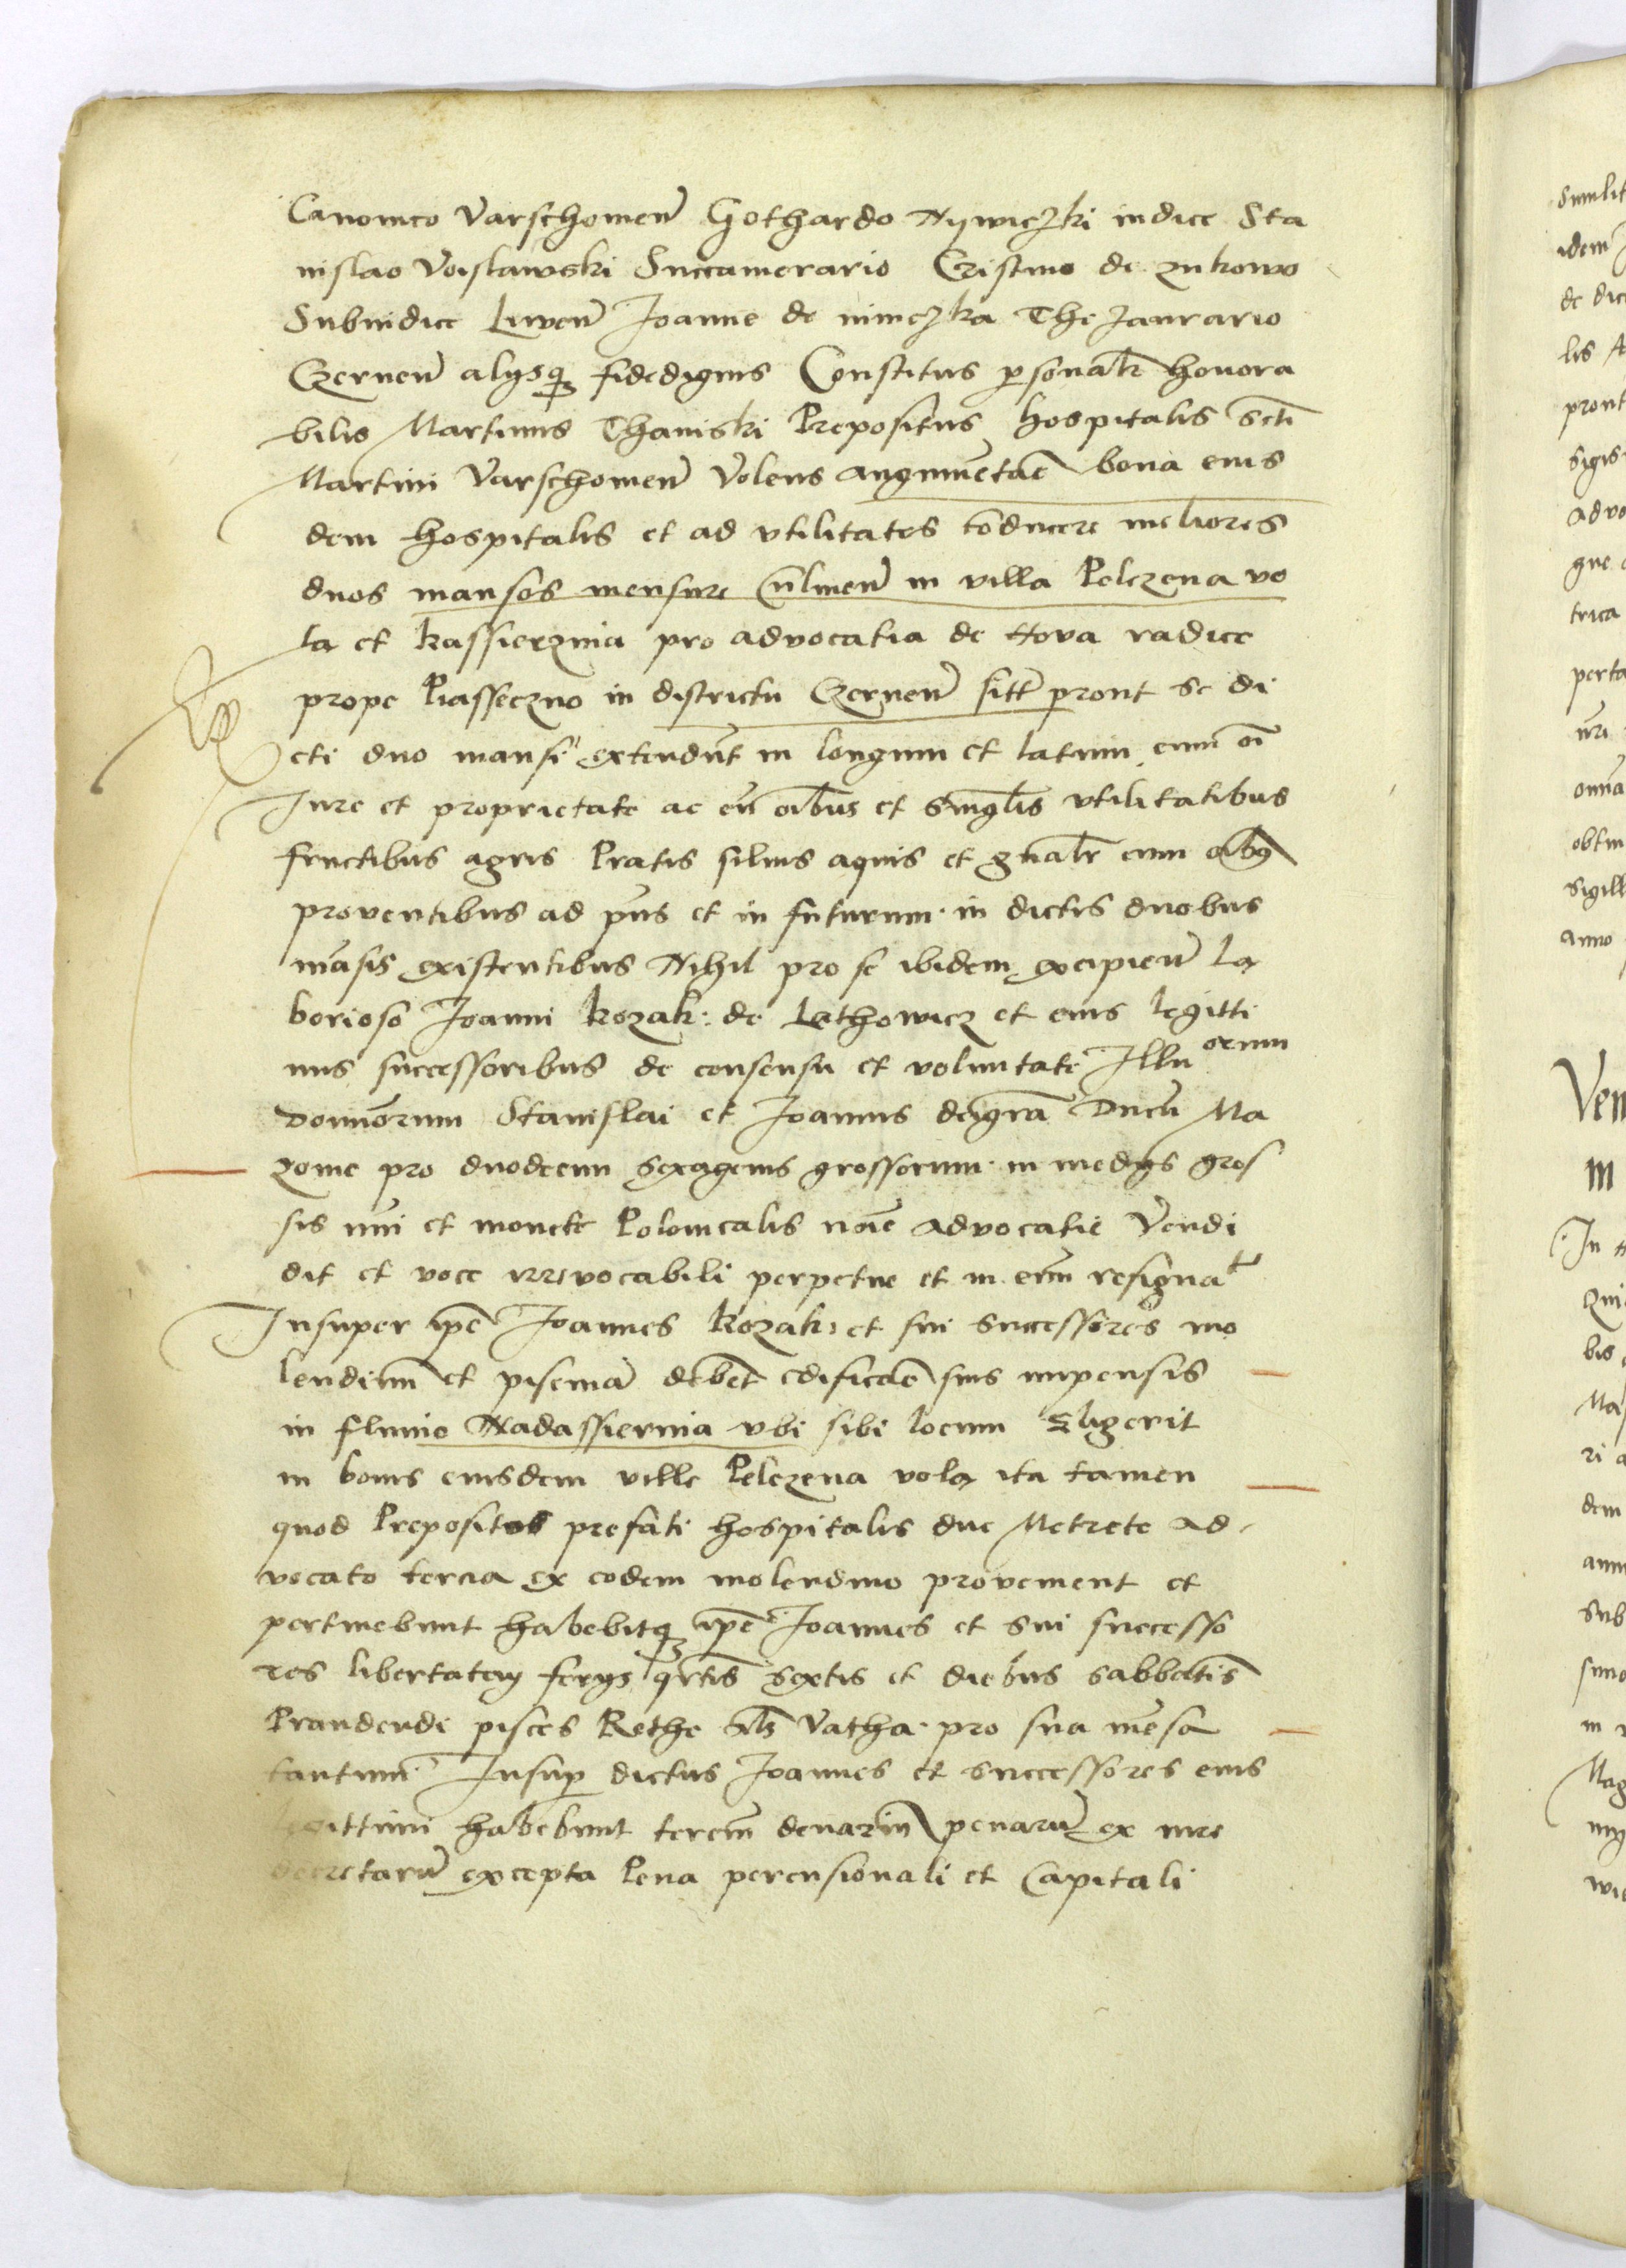 Canonico Varschowien̄ Gothardo Nywiczki iudice Sta
nislao Voislawski Succamerario Cristino de zukowo
Subiudice Liwen̄ Joanne de nimczka Thezaurario
Czernen̄ alysq fidedignis Constitus psonalr̄ honora
bilis Martinus Thaniski Prepositus hospitalis Scti
Martini Varschowien̄ Volens augmētare bona eius
dem hospitalis et ad vtilitates cōducere meliores
duos mansos mensure Culmen̄ in villa Pelczena vo
la et kassierznia pro advocatia de Nova radice
prope Piasseczno in districtu Czernen̄ sitt̄ prout se di
cti duo mansi extendūt in longum et latum cum oī
Jure et proprietate ac cū oībus et singl̄is vtilitatibus
fructibus agris Pratis siluis aquis et gn̄alr̄ cum oībq
proventibus ad pn̄s et in futurum in dictis duobus
māsis existentibus Nihil pro se ibidem excipien̄ la
borioso Joanni kozak de Lathowicz et eius legitti
mis successoribus de consensu et voluntate Illu orum
Domīorum Stanislai et Joannis dei grā Ducū Ma
zouie pro duodecim sexagenis grossorum in medys gros
sis nūi et monete Polonicalis noīe advocatie Vendi
dit et voce irrevocabili perpetue et in evm̄ resignat
Insuper ipē Joannes kozak et sui successores mo
lendinū et piscinā debēt edificare suis impensis
in fluuio Nadassiernia vbi sibi locum Eligerit
in bonis eiusdem ville Pelczena vola ita tamen
quod Prepositos prefati hospitalis due Metrete ad
vocato tercia ex eodem molendino provenient et
pertinebunt habebitq ipē Joannes et sui successo
res libertatem ferys qrtis sextis et diebus sabbatis
Prandendi pisces Rethe als Vatha pro sua mēsa
tantum Insup dictus Joannes et successores eius
legittimi habebunt terciū denariū penarū ex iure
decretarū excepta Pena percusionali et Capitali